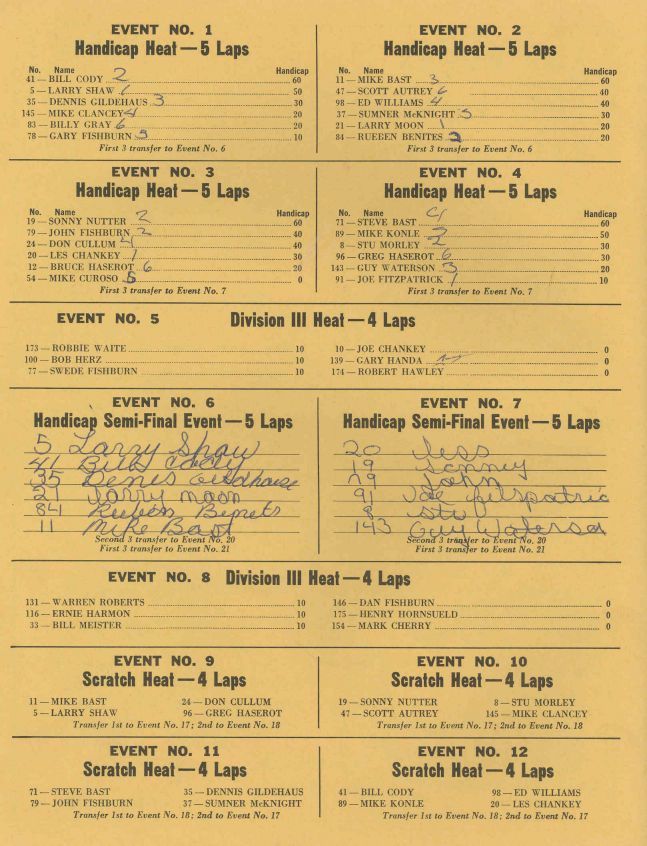 EVENT NO. 1
Handicap Heat — 5 Laps
No. Name Handicap
41 — BILL CODY 2 60
5 — LARRY SHAW 50
35 — DENNIS GILDEHAUS 3 30
145 — MIKE CLANCEY 4 20
83 — BILLY GRAY 6 20
78 — GARY FISHBURN 5 10
First 3 transfer to Event No. 6
EVENT NO. 2
Handicap Heat — 5 Laps
No. Name Handicap
11 — MIKE BAST 3 60
47 — SCOTT AUTREY 6 40
98 — ED WILLIAMS 4 40
37 — SUMNER McKNIGHT 5 30
21 — LARRY MOON 1 20
84 — RUEBEN BENITES 2 20
First 3 transfer to Event No. 6
EVENT NO. 3
Handicap Heat — 5 Laps
No. Name Handicap
19 — SONNY NUTTER 2 60
79 — JOHN FISHBURN 40
24 — DON CULLUM 4 40
20 — LES CHANKEY 1 30
12 — BRUCE HASEROT 6 20
54 — MIKE CUROSO 5 0
First 3 transfer to Event No. 7
EVENT NO. 4
Handicap Heat — 5 Laps
No. Name Handicap
71 — STEVE BAST 4 60
89 — MIKE KONLE 50
8 — STU MORLEY 2 30
96 — GREG HASEROT 6 30
143 — GUY WATERSON 3 20
91 — JOE FITZPATRICK 1 10
First 3 transfer to Event No. 7
EVENT NO. 5 Division III Heat — 4 Laps
173 — ROBBIE WAITE 10
100 — BOB HERZ 10
77 — SWEDE FISHBURN 10
10 — JOE CHANKEY 0
139 — GARY HANDA 0
174 — ROBERT HAWLEY 0
EVENT NO. 6
Handicap Semi-Final Event — 5 Laps
5 Larry Shaw
41 Bill Cody
35 Denis Gildhause
21 larry moon
84 Rueben Binets
11 Mike Bast
Second 3 transfer to Event No. 20
First 3 transfer to Event No. 21
EVENT NO. 7
Handicap Semi-Final Event — 5 Laps
20 less
19 sonney
79 John
91 Joe fitspatric
8 stu
143 Guy Waterson
Second 3 transfer to Event No. 20
First 3 transfer to Event No. 21
EVENT NO. 8 Division III Heat — 4 Laps
131 — WARREN ROBERTS 10
116 — ERNIE HARMON 10
33 — BILL MEISTER 10
146 — DAN FISHBURN 0
175 — HENRY HORNSUELD 0
154 — MARK CHERRY 0
EVENT NO. 9
Scratch Heat — 4 Laps
11 — MIKE BAST 24 — DON CULLUM
5 — LARRY SHAW 96 — GREG HASEROT
Transfer 1st to Event No. 17; 2nd to Event No. 18
EVENT NO. 10
Scratch Heat — 4 Laps
19 — SONNY NUTTER 8 — STU MORLEY
47 — SCOTT AUTREY 145 — MIKE CLANCEY
Transfer 1st to Event No. 17; 2nd to Event No. 18
EVENT NO. 11
Scratch Heat — 4 Laps
71 — STEVE BAST 35 — DENNIS GILDEHAUS
79 — JOHN FISHBURN 37 — SUMNER McKNIGHT
Transfer 1st to Event No. 18; 2nd to Event No. 17
EVENT NO. 12
Scratch Heat — 4 Laps
41 — BILL CODY 98 — ED WILLIAMS
89 — MIKE KONLE 20 — LES CHANKEY
Transfer 1st to Event No. 18; 2nd to Event No. 17